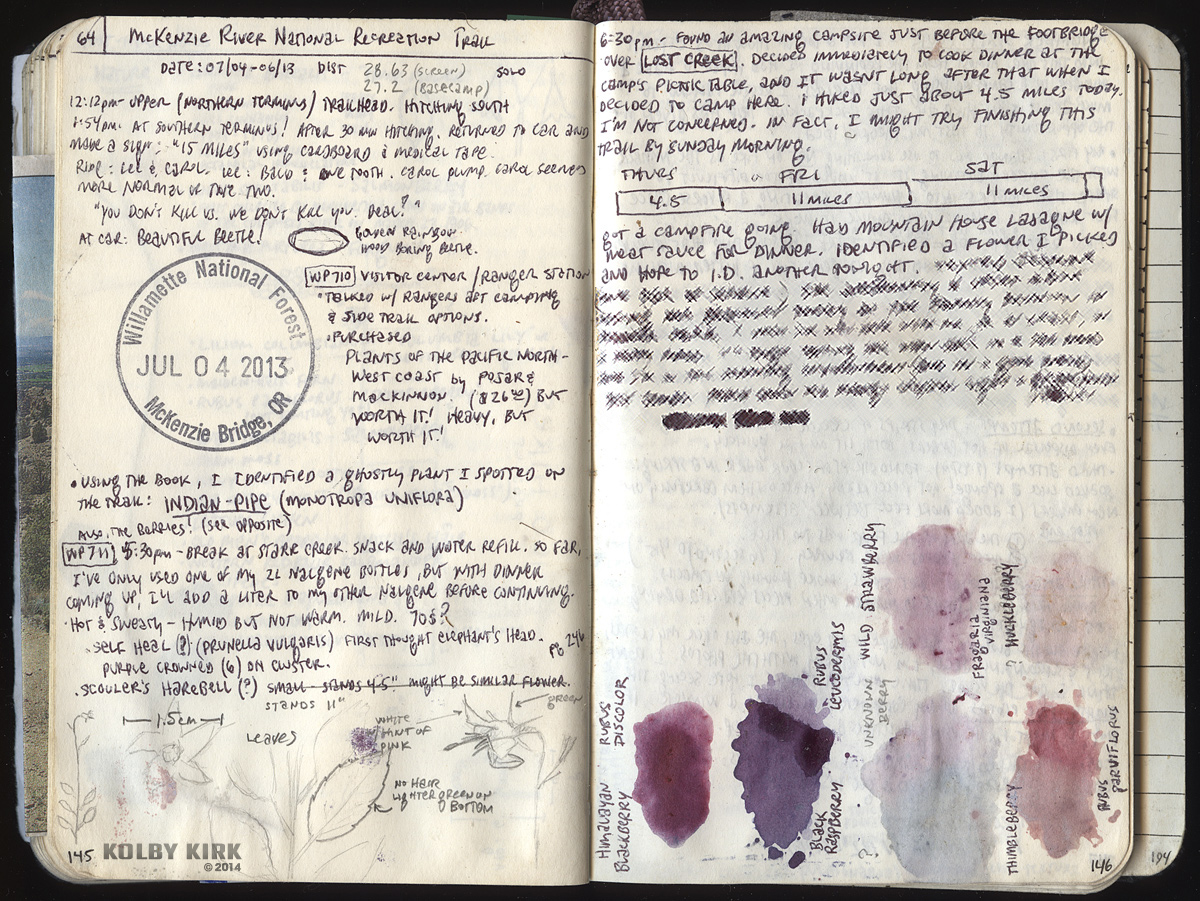 64 McKenzie River National Recreation Trail
DATE: 07/04-06/13 DIST 28.63 (SCREEN) SOLO
27.2 (BASECAMP)
12:12pm- UPPER (NORTHERN TERMINUS) TRAILHEAD. HITCHING SOUTH
1:54pm. AT SOUTHERN TERMINUS! AFTER 30 MIN HITCHING, RETURNED TO CAR AND
MAKE A SIGN: "15 MILES" USING CARDBOARD & MEDICAL TAPE.
RIDE: LEE & CAROL. LEE: BALD & ONE TOOTH. CAROL PLUMP. CAROL SEEMED
MORE NORMAL OF THE TWO.
"YOU DON'T KILL US. WE DON'T KILL YOU. DEAL?"
AT CAR: BEAUTIFUL BEETLE!
GOLDEN RAINBOW
WOOD BORING BEETLE.
WP710 VISITOR CENTER/RANGER STATION
• TALKED W/ RANGERS ABT CAMPING
& SIDE TRAIL OPTIONS.
• PURCHASED
PLANTS OF THE PACIFIC NORTH-
WEST COAST by POJAR &
MACKINNON. ($26.00) BUT
WORTH IT! HEAVY, BUT
WORTH IT!
Willamette National Forest
JUL 04 2013
McKenzie Bridge, OR
• USING THE BOOK, I IDENTIFIED A GHOSTLY PLANT I SPOTTED ON
THE TRAIL: INDIAN-PIPE (MONOTROPA UNIFLORA)
ALSO, THE BERRIES! (SEE OPPOSITE)
WP711 5:30pm - BREAK AT STARR CREEK. SNACK AND WATER REFILL. SO FAR,
I'VE ONLY USED ONE OF MY 2L NALGENE BOTTLES, BUT WITH DINNER
COMING UP, I'LL ADD A LITER TO MY OTHER NALGENE BEFORE CONTINUING.
• HOT & SWEATY - HUMID BUT NOT WARM. MILD. 70s?
• SELF HEAL (?) (PRUNELLA VULGARIS) FIRST THOUGHT ELEPHANT'S HEAD. PG 246
PURPLE CROWNED (6) ON CLUSTER.
• SCOULER'S HAREBELL (?) SMALL - STANDS 4-5" MIGHT BE SIMILAR FLOWER.
STANDS 11"
1.5cm
LEAVES
WHITE
HINT OF
PINK
GREEN
NO HAIR
LIGHTER GREEN ON
BOTTOM
145 KOLBY KIRK
© 2014
6:30pm - FOUND AN AMAZING CAMPSITE JUST BEFORE THE FOOTBRIDGE
OVER LOST CREEK. DECIDED IMMEDIATELY TO COOK DINNER AT THE
CAMP'S PICNIC TABLE, AND IT WASN'T LONG AFTER THAT WHEN I
DECIDED TO CAMP HERE. I HIKED JUST ABOUT 4.5 MILES TODAY.
I'M NOT CONCERNED. IN FACT, I MIGHT TRY FINISHING THIS
TRAIL BY SUNDAY MORNING.
THURS FRI SAT
4.5 11 MILES 11 MILES
GOT A CAMPFIRE GOING. HAD MOUNTAIN HOUSE LASAGNE W/
MEAT SAUCE FOR DINNER. IDENTIFIED A FLOWER I PICKED
AND HOPE TO I.D. ANOTHER TONIGHT.
WILD STRAWBERRY
FRAGARIA
VIRGINIANA
? HUCKLEBERRY
HIMALAYAN
BLACKBERRY
RUBUS
DISCOLOR
BLACK
RASPBERRY
RUBUS
LEUCODERMIS
? UNKNOWN
BERRY
THIMBLEBERRY
RUBUS
PARVIFLORUS
146
194